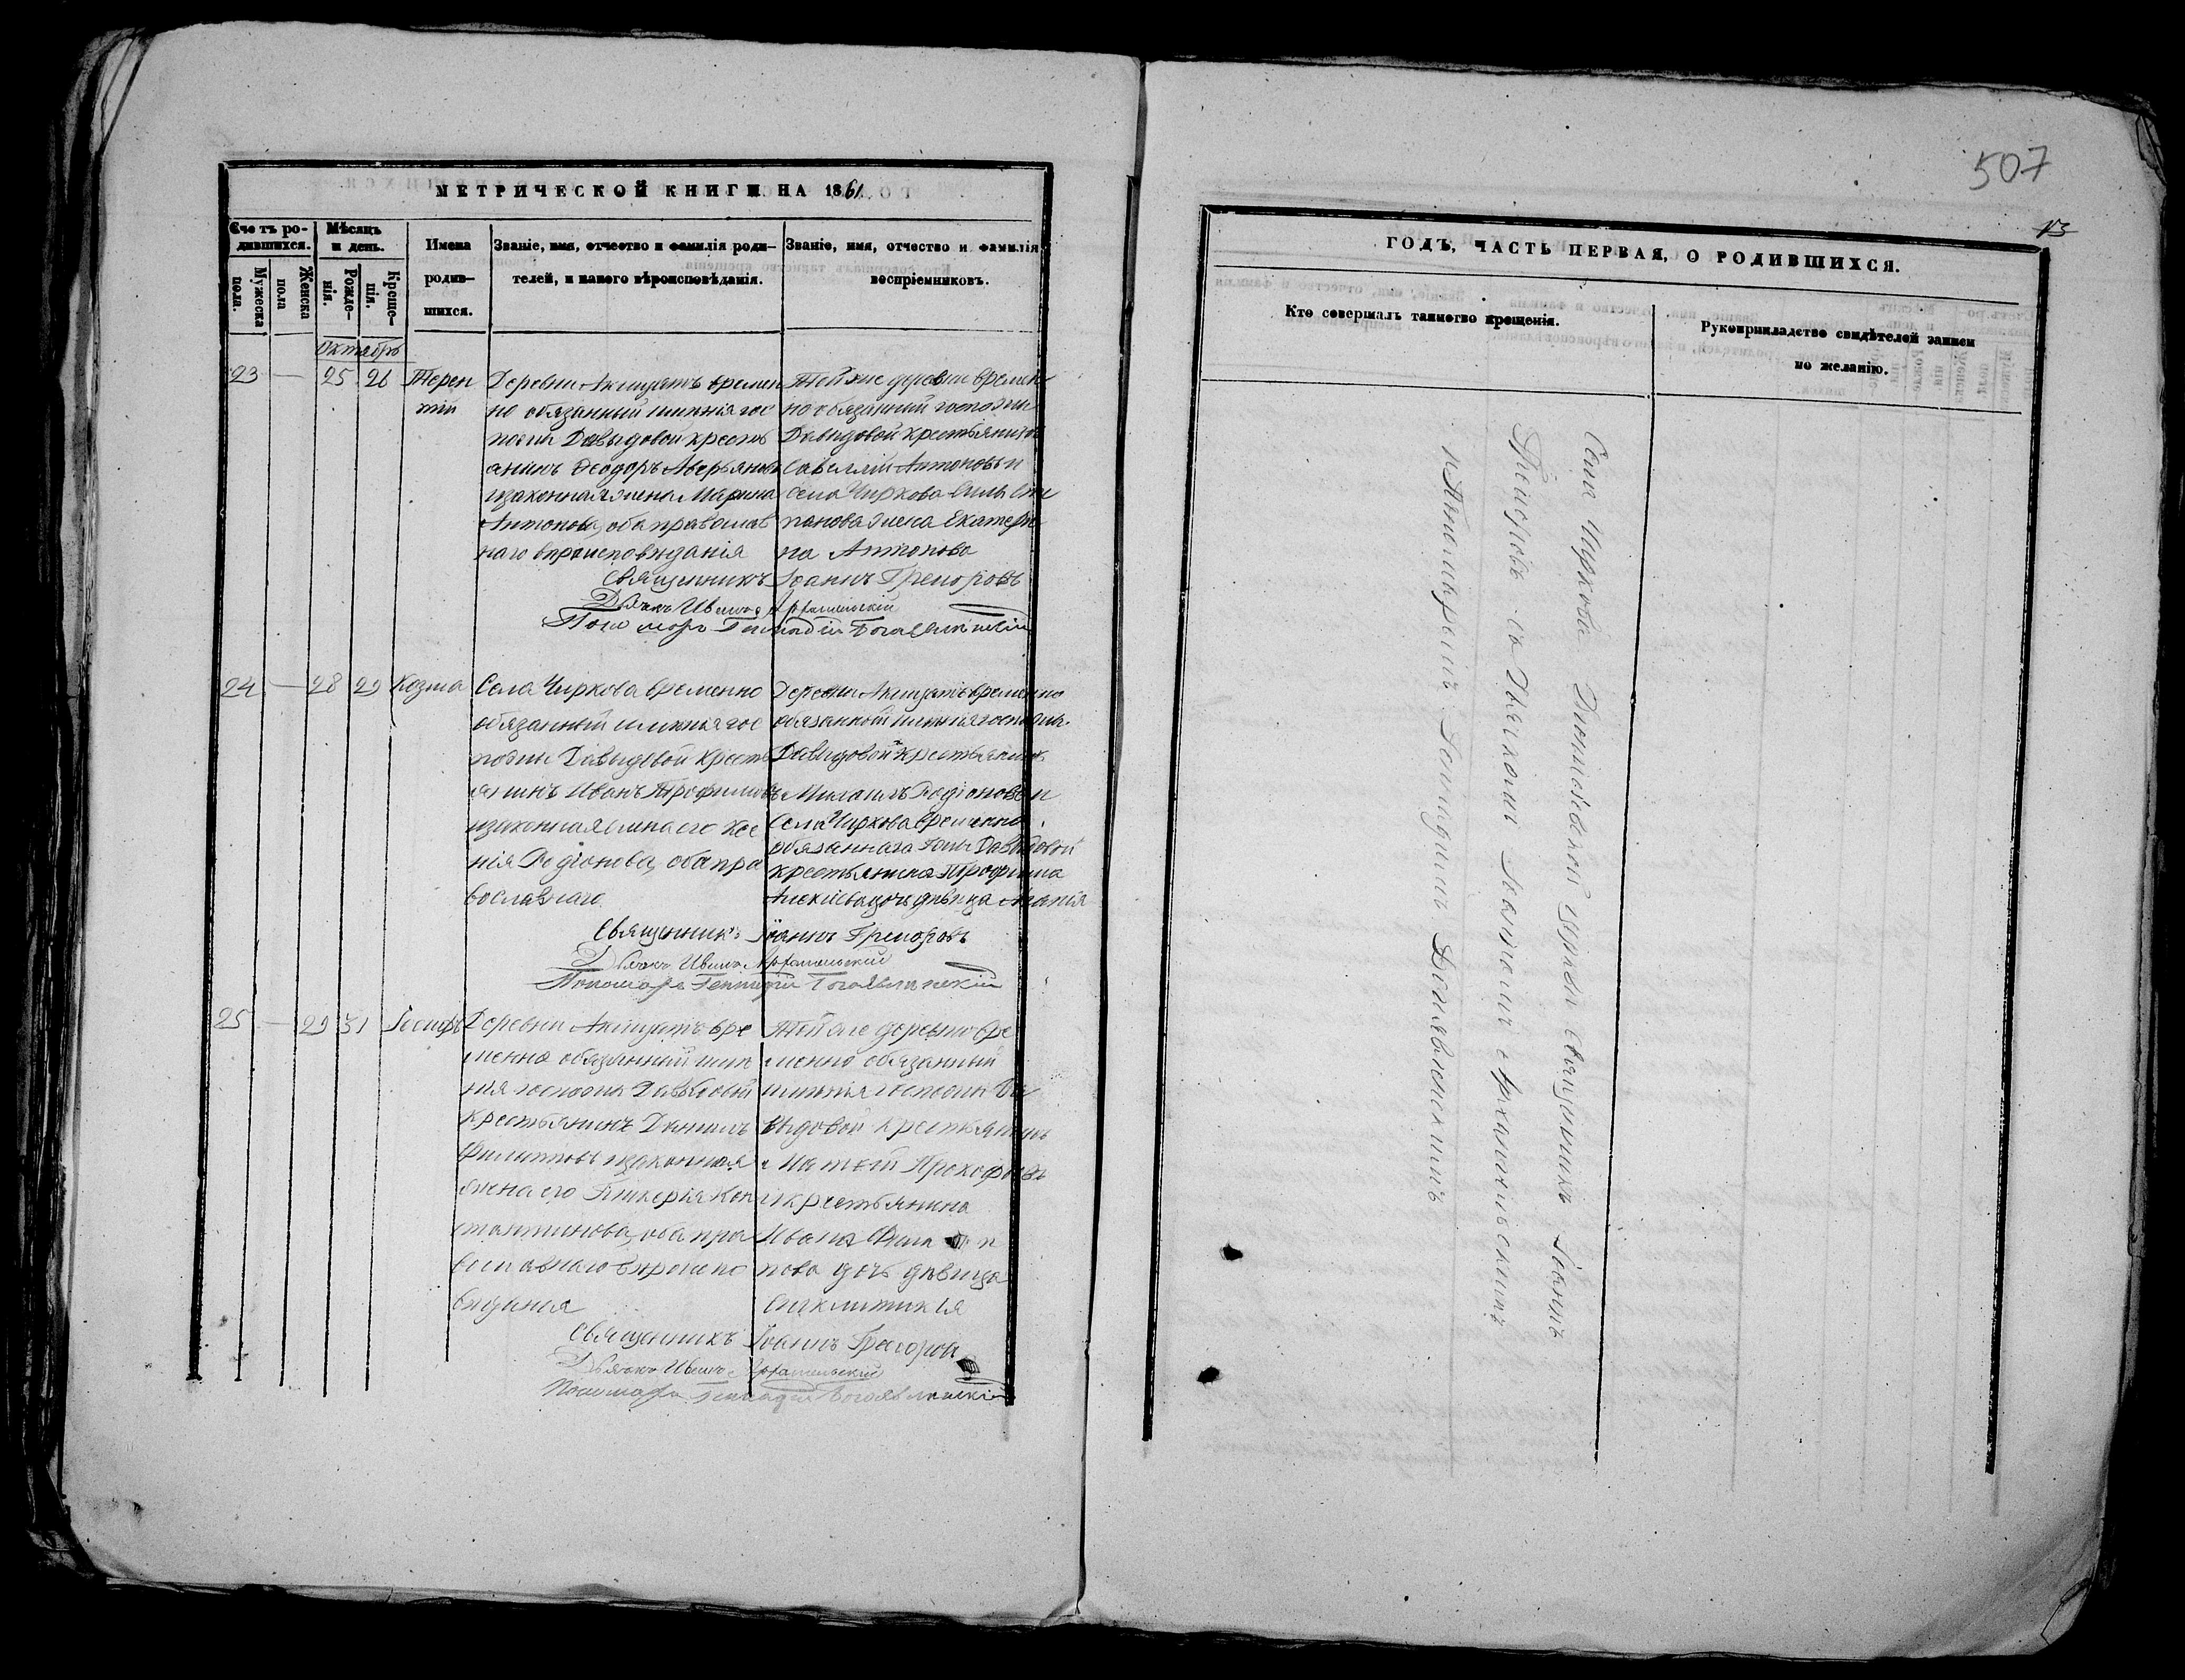 МЕТРИЧЕСКОЙ КНИГИ НА 1861
Счетъ родившихся.
Мужеска пола.
Женска пола
Мѣсяцъ и день.
Рожденія.
Крещенія.
Имена родившихся.
Званіе, имя, отчество и фамилія родителей, и какого вѣроисповѣданія.
Званіе, имя, отчество и фамилія воспріемниковъ.
Октябрь
23 — 25 26 Терен
тій
Деревни Акищатъ времен
но обязанный имѣнія гос
пожи Давыдовой кресть
янинъ Ѳеодоръ Аверьяновъ
и законная жена Марина
Антонова, оба православ
наго вѣроисповѣданія
Той же деревни времен
но обязанный госпожи
Давыдовой крестьянинъ
Савеллій Антоновъ и
села Чиркова Силы Сте
панова жена Екатери
на Антонова
Священникъ Іоаннъ Григоровъ
Дьячекъ Иванъ Архангельскій
Пономарь Геннадій Богоявленскій
24 — 28 29 Козма
Села Чиркова временно
обязанный имѣнія гос
пожи Давыдовой кресть
янинъ Иванъ Трофимовъ
и законная жена его Ксе
нія Родіонова, оба пра
вославнаго
Деревни Акищатъ временно
обязанной имѣнія госпожи
Давыдовой крестьянинъ
Михаилъ Родіоновъ и
Села Чиркова временно
обязаннаго Гжи Давыдовой
крестьянина Трофима
Алексѣева дочь дѣвица
Священникъ Іоаннъ Григоровъ
Дьячекъ Иванъ Архангельскій
Пономарь Геннадій Богоявленскій
25 — 29 31 Іосифъ
Деревни Акищатъ вре
менно обязанный имѣ
нія госпожи Давыдовой
крестьянинъ Даніилъ
Филипповъ и законная
жена его Гликерія Кон
стантинова, оба пра
вославнаго вѣроиспо
вѣданія
Той же деревни вре
менно обязанный
имѣнія госпожи Да
выдовой крестьянинъ
Прокофьевъ
и крестьянина
Ивана Фили
пова дочь дѣвица
Синклитикія
Священникъ Іоаннъ Григоровъ
Дьячекъ Иванъ Архангельскій
Пономарь Геннадій Богоявленскій
507
13
ГОДЪ, ЧАСТЬ ПЕРВАЯ, О РОДИВШИХСЯ.
Кто совершалъ таинство крещенія.
Рукоприкладство свидѣтелей записи по желанію.
Села Чиркова Димитріевской церкви священникъ Іоаннъ
Григоровъ съ Дьячкомъ Иваномъ Архангельскимъ
и Пономаремъ Геннадіемъ Богоявленскимъ